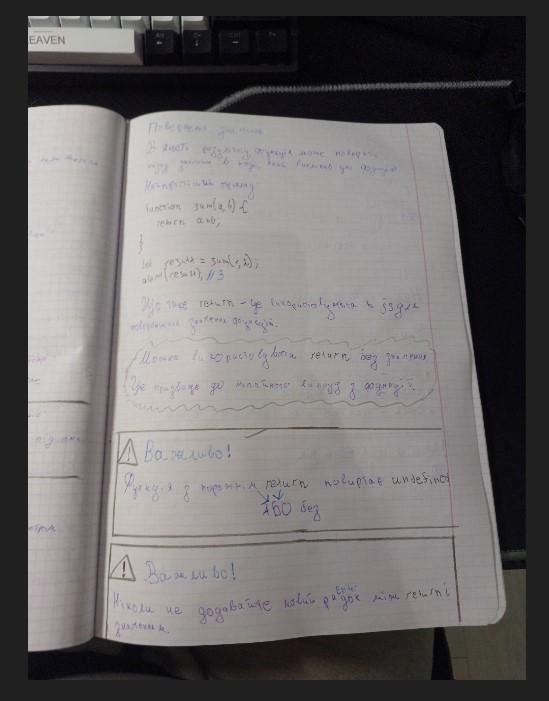 EAVEN
Повернення значення
В якості результату функція може повернути
назад значення в код, який викликав цю функцію
Найпростіший приклад
function sum(a,b) {
return a+b;
}
let result = sum(1,2);
alert(result); //3
Що таке return - це використовується в js для
повернення значення функцій.
Можна використовувати return без значення
Це призведе до миттєвого виходу з функції.
Важливо!
Функція з порожнім return повертає undefined
Або без
Важливо!
Enter
Ніколи не додавайте новий рядок між return і
значенням.